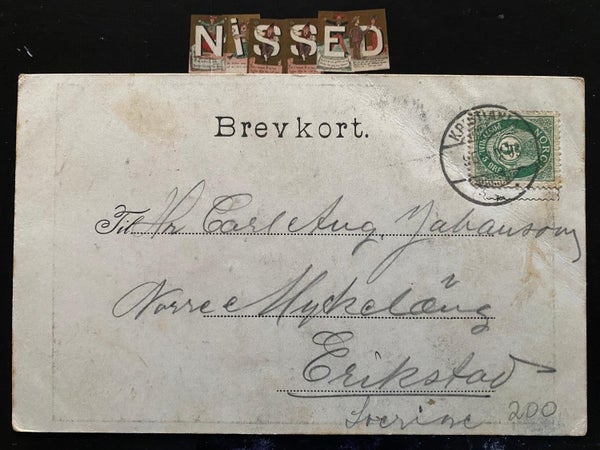 NiSSED
Brevkort.
NORG
5
Til Hr Carl Aug. Johansson
Norre Myckeläng
Erikstad
Sverige
200